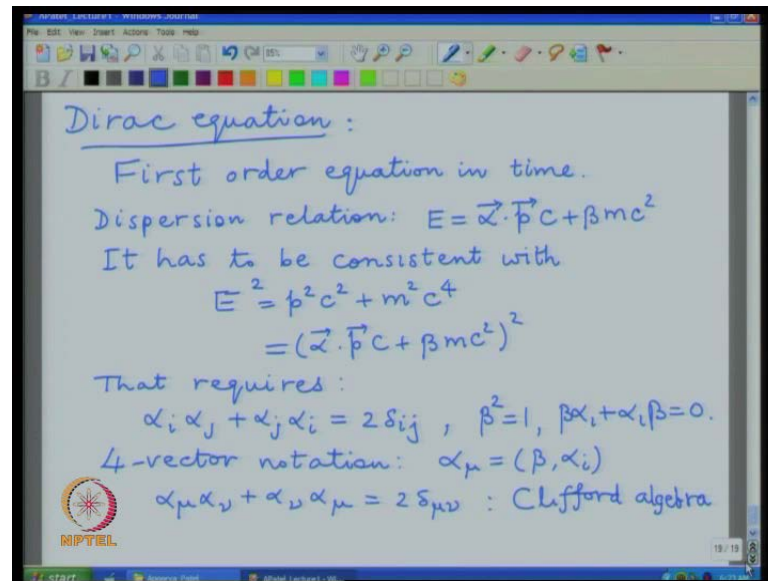 APatel_Lecture1 - Windows Journal
File Edit View Insert Actions Tools Help
85%
B I
Dirac equation :
First order equation in time.
Dispersion relation: E = α⃗·p⃗ c + βmc²
It has to be consistent with
E² = p²c² + m²c⁴
= (α⃗·p⃗ c + βmc²)²
That requires :
αᵢαⱼ + αⱼαᵢ = 2δᵢⱼ , β²=1, βαᵢ+αᵢβ=0.
4-vector notation: α_μ = (β, αᵢ)
α_μ α_ν + α_ν α_μ = 2δ_μν : Clifford algebra
NPTEL
19 / 19
start Apoorva Patel APatel_Lecture1 - Wi...